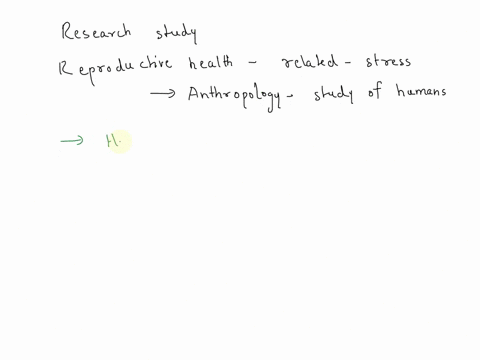 Research study
Reproductive health - related - stress
→ Anthropology - study of humans
→ H